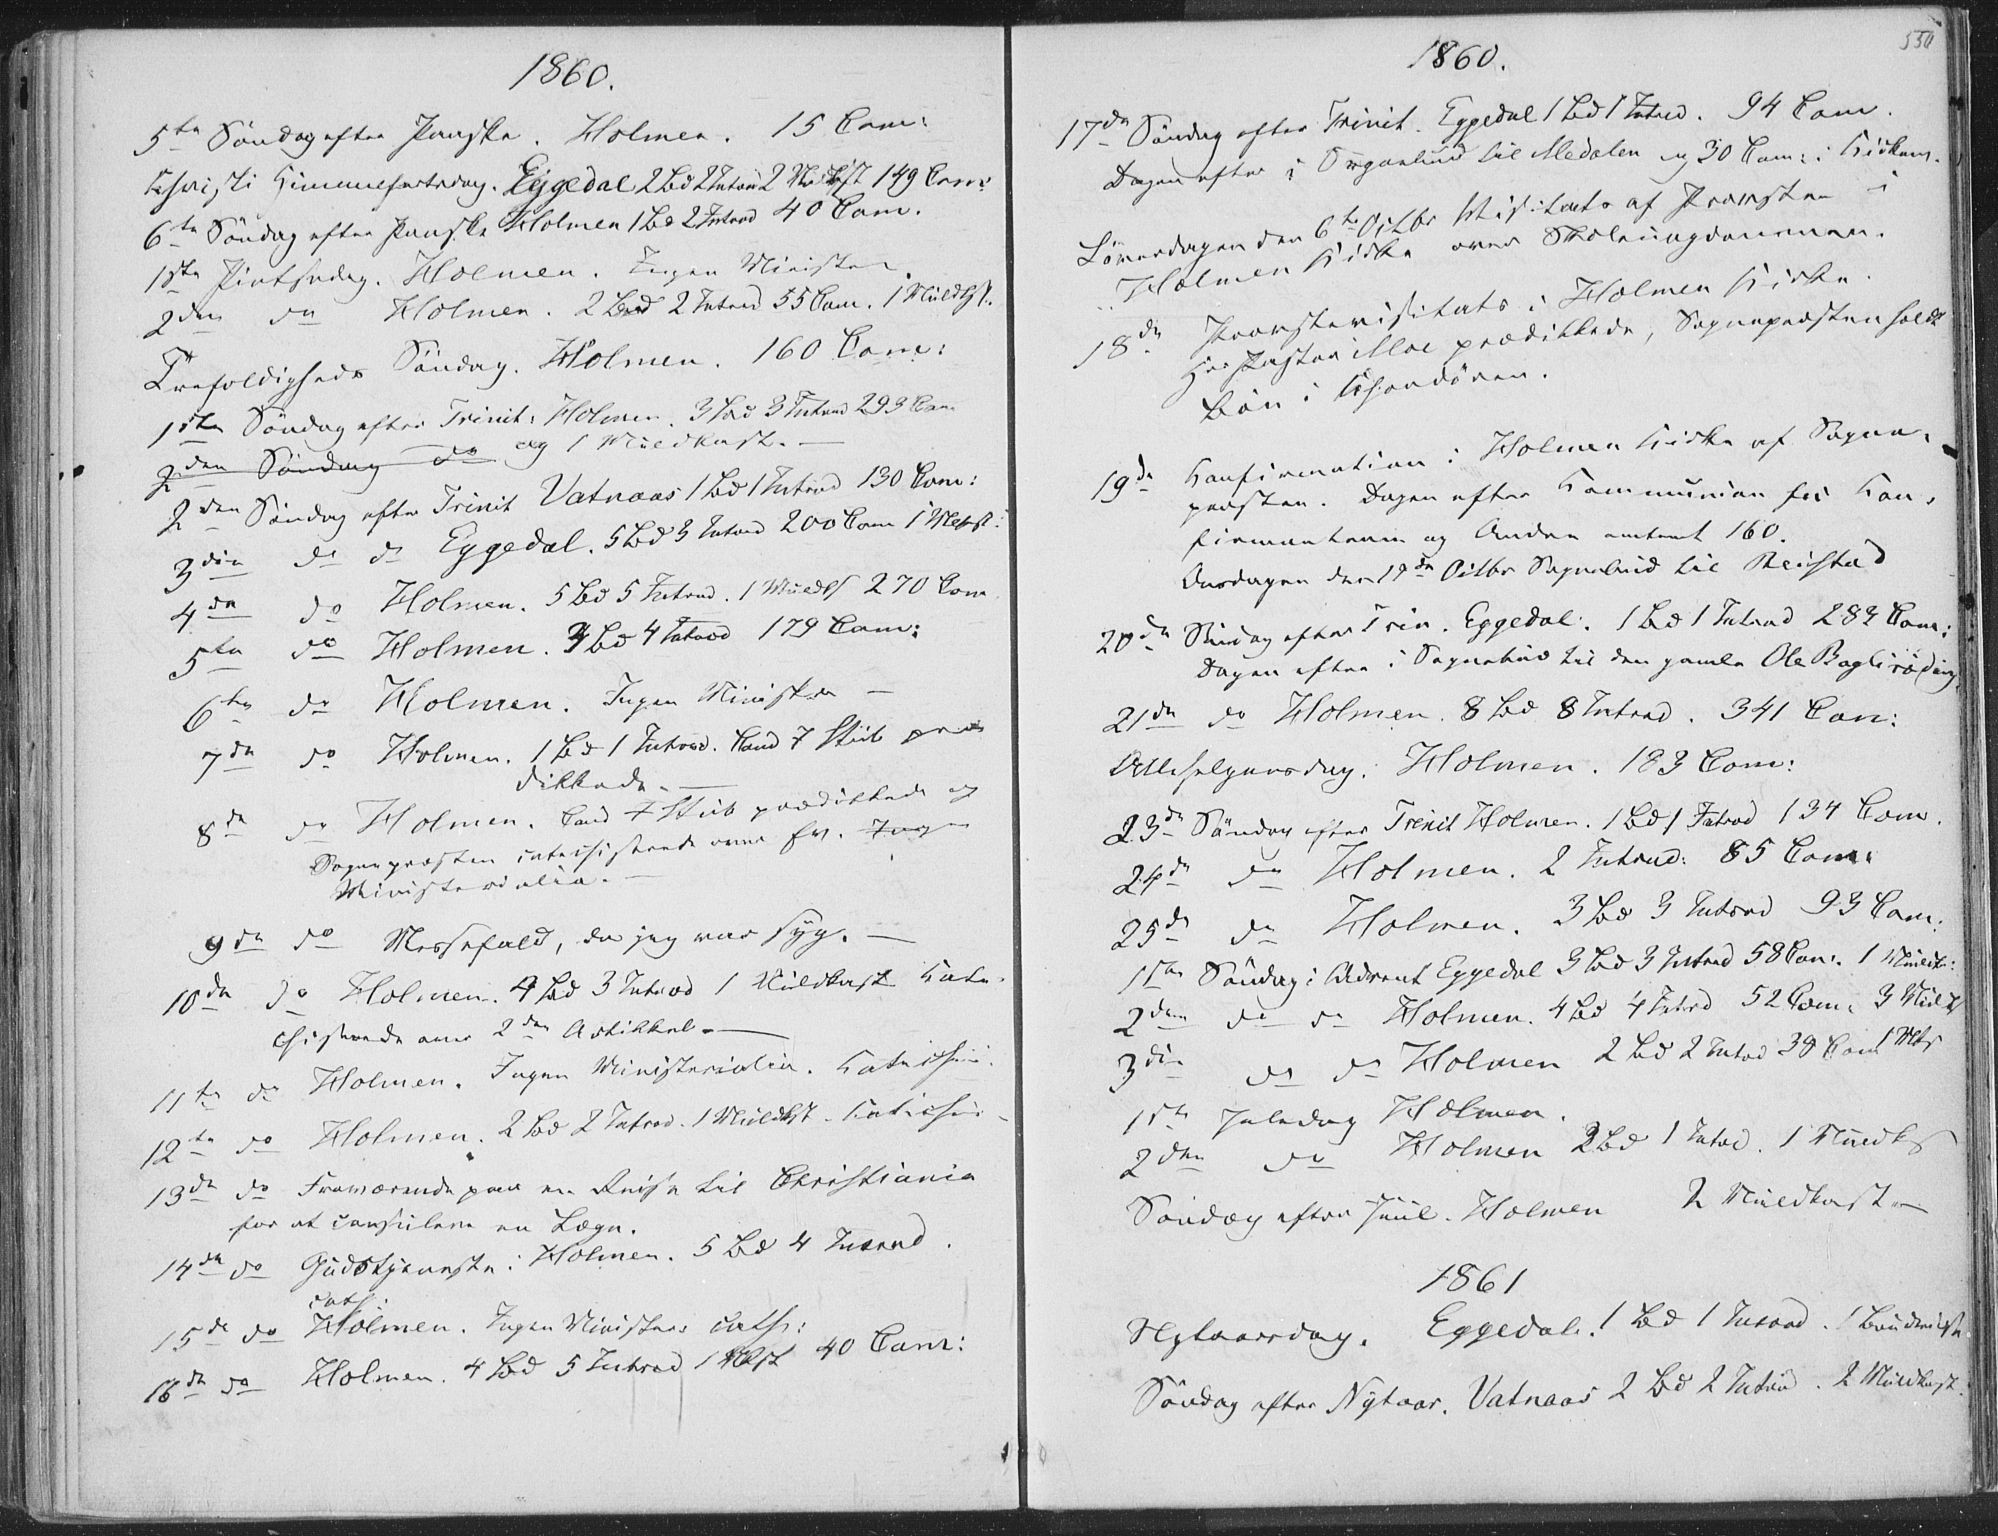 1860.
5te Søndag efter Paaske. Holmen. 15 Com:
Christi Himmelfartsdag. Eggedal 2 Bd 2 Introd 2 Mldkst 149 Com:
6te Søndag efter Paaske Holmen 1 Bd 2 Introd 40 Com.
1ste Pintsedag. Holmen. Ingen Minister.
2den do Holmen. 2 Bd 2 Introd 55 Com. 1 Muldkst.
Trefoldigheds Søndag. Holmen. 160 Com:
1ste Søndag efter Trinit: Holmen. 3 Bd 3 Introd 293 Com
2den Søndag do og 1 Muldkast. —
2den Søndag efter Trinit Vatnaas 1 Bd 1 Introd 130 Com:
3die do do Eggedal. 5 Bd 3 Introd 200 Com 1 Mkst:
4de do Holmen. 5 Bd 5 Introd. 1 Muldk 270 Com
5te do Holmen. 3 Bd 4 Introd 179 Com:
6te do Holmen. Ingen Minister —
7de do Holmen. 1 Bd 1 Introd. Cand Stub præ
dikkede. —
8de do Holmen. Cand Stub prædikkede og
Sognepræsten catechiserede over Ev. Ingen
Ministerialia. —
9de do Messefald, da jeg var syg. —
10de do Holmen. 4 Bd 3 Introd 1 Muldkast Kate-
chiserede over 2den Artikkel. —
11te do Holmen. Ingen Ministerialia. Katechis:
12te do Holmen. 2 Bd 2 Introd. 1 Muldkst. Katechis —
13de do Fraværende paa en Reise til Christiania
for at consulere en Læge.
14de do Gudstjeneste i Holmen. 5 Bd 4 Introd.
cath:
15de do Holmen. Ingen Minister cath:
16de do Holmen. 4 Bd 5 Introd 1 Mkst 40 Com:
550
1860.
17de Søndag efter Trinit. Eggedal 1 Bd 1 Introd. 94 Com.
Dagen efter i Sognebud til Medalen og 30 Com: i Kirken.
Løverdagen den 6te Octbr Visitats af Provsten i
Holmen Kirke over Skoleungdommen.
18de Provstevisitats i Holmen Kirke.
Hr Pastor Moe prædikkede, Sognepræsten holdt
Bøn i Chordøren.
19de Konfirmation i Holmen Kirke af Sogne-
præsten. Dagen efter Kommunion for Kon-
firmanterne og Andre omtrent 160.
Onsdagen den 17de Octbr Sognebud til Reistad
20de Søndag efter Trin. Eggedal. 1 Bd 1 Introd 282 Com:
Dagen efter i Sognebud til den gamle Ole
21de do Holmen. 8 Bd 8 Introd. 341 Com:
Allehelgensdag. Holmen. 183 Com:
23de Søndag efter Trinit Holmen. 1 Bd 1 Introd 134 Com.
24de do Holmen. 2 Introd: 85 Com:
25de do Holmen. 3 Bd 3 Introd 93 Com:
1ste Søndag i Advent Eggedal 3 Bd 3 Introd 58 Com. 1 Muldk:
2den do do Holmen. 4 Bd 4 Introd 52 Com: 3 Muldk
3die do do Holmen 2 Bd 2 Introd 38 Com 1 Mks
1ste Juledag Holmen.
2den do Holmen 2 Bd 1 Introd. 1 Muldks
Søndag efter Juul. Holmen 2 Muldkast —
1861
Nytaarsdag. Eggedal. 1 Bd 1 Introd. 1 Brudevielse
Søndag efter Nytaar. Vatnaas 2 Bd 2 Introd. 2 Muldkast.